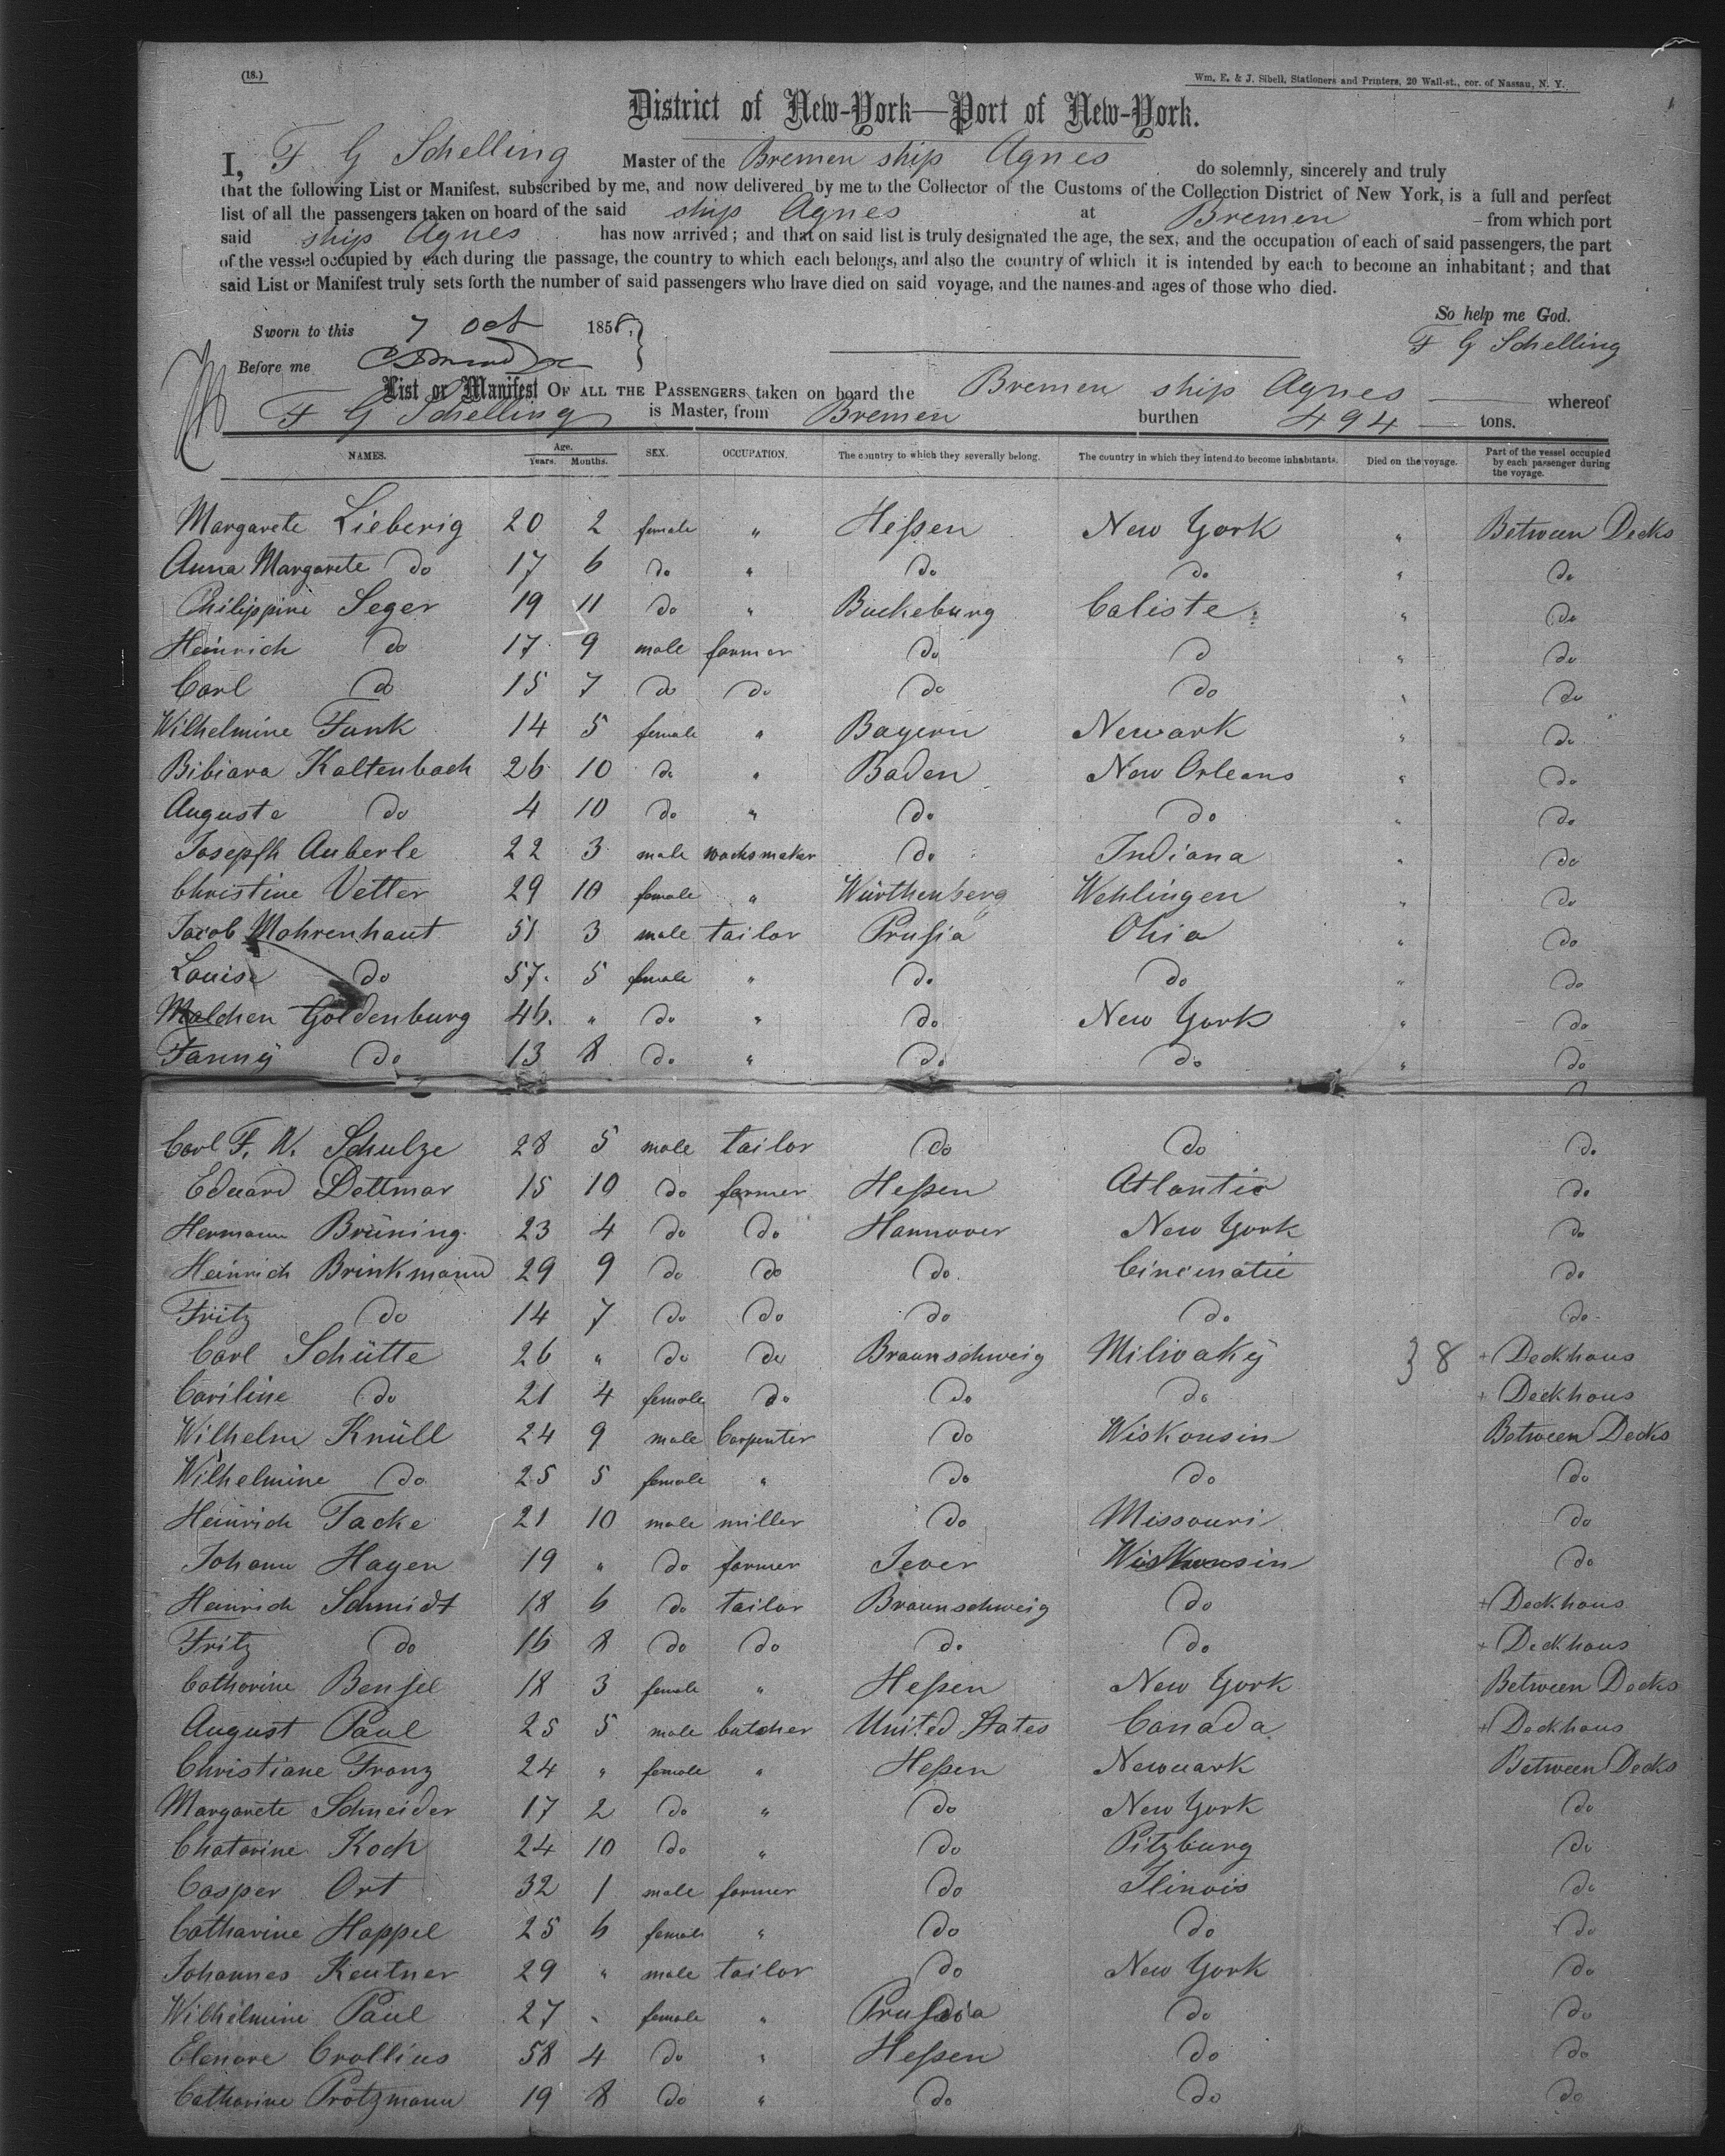 (18.)
Wm. E. & J. Sibell, Stationers and Printers, 20 Wall-st., cor. of Nassau, N. Y.
District of New-York—Port of New-York.
I, F G Schelling Master of the Bremen ship Agnes do solemnly, sincerely and truly
that the following List or Manifest, subscribed by me, and now delivered by me to the Collector of the Customs of the Collection District of New York, is a full and perfect
list of all the passengers taken on board of the said ship Agnes at Bremen from which port
said ship Agnes has now arrived; and that on said list is truly designated the age, the sex, and the occupation of each of said passengers, the part
of the vessel occupied by each during the passage, the country to which each belongs, and also the country of which it is intended by each to become an inhabitant; and that
said List or Manifest truly sets forth the number of said passengers who have died on said voyage, and the names and ages of those who died.
So help me God.
Sworn to this 7 Oct 1858.
F G Schelling
Before me
List or Manifest OF ALL THE PASSENGERS taken on board the Bremen ship Agnes whereof
F G Schelling is Master, from Bremen burthen 494 tons.
NAMES. Age. Years. Months. SEX. OCCUPATION. The country to which they severally belong. The country in which they intend to become inhabitants. Died on the voyage. Part of the vessel occupied by each passenger during the voyage.
Margarete Lieberig 20 2 female " Heßen New York " Between Decks
Anna Margarete do 17 6 do " do do " do
Philippine Seger 19 11 do " Buckeburg Caliste " do
Heinrich do 17 9 male farmer do d " do
Carl do 15 7 do do do do " do
Wilhelmine Funk 14 5 female " Bayern Newark " do
Bibiara Kaltenbach 26 10 do " Baden New Orleans " do
Auguste do 4 10 do " do do " do
Josepfh Auberle 22 3 male wachsmaker do Indiana " do
Christine Vetter 29 10 female " Würthenberg Wehlingen " do
Jacob Mohrenhaut 51 3 male tailor Prußia Ohio " do
Louise do 57 5 female " do do " do
Malchen Goldenburg 46 " do " do New York " do
Fanny do 13 8 do " do do " do
Carl F. W. Schulze 28 5 male tailor do do do
Eduard Dettmar 15 10 do farmer Heßen Atlantic do
Hermann Brüning 23 4 do do Hannover New York do
Heinrich Brinkmann 29 9 do do do Cincinatie do
Fritz do 14 7 do do do do do
Carl Schütte 26 " do do Braunschweig Milwaky 38 + Deckhaus
Cariline do 21 4 female do do do + Deckhaus
Wilhelm Knüll 24 9 male Carpenter do Wiskonsin Between Decks
Wilhelmine do 25 5 female " do do do
Heinrich Tacke 21 10 male miller do Missouri do
Johann Hagen 19 " do farmer Jever Wiskonsin do
Heinrich Schmidt 18 6 do tailor Braunschweig do + Deckhaus
Fritz do 16 8 do do do do + Deckhaus
Catharine Benßel 18 3 female " Heßen New York Between Decks
August Paul 25 5 male butcher United States Canada + Deckhaus
Christiane Franz 24 " female " Heßen Newuark Between Decks
Margarete Schneider 17 2 do " do New York do
Chatarine Koch 24 10 do " do Pitzburg do
Casper Ort 32 1 male farmer do Ilinois do
Catharine Happel 25 6 female " do do do
Johannes Keutner 29 " male tailor do New York do
Wilhelmine Paul 27 " female " Prussia do do
Elenore Crollius 58 4 do " Heßen do do
Catharine Protzmann 19 8 do " do do do